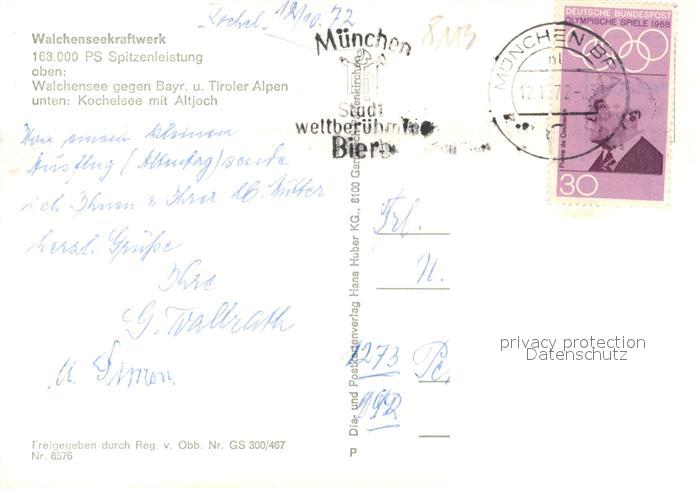 Kochel, 12/10.72
8113
Walchenseekraftwerk
163.000 PS Spitzenleistung
oben:
Walchensee gegen Bayr. u. Tiroler Alpen
unten: Kochelsee mit Altjoch
Von einem kleinen
Ausflug (Altentag) sende
ich Ihnen u Ihrer lb. Mutter
herzl. Grüße
Ihre
G. Wallrath
u. Simon
Freigegeben durch Reg. v. Obb. Nr. GS 300/467
Nr. 8576
München
Stadt
weltberühmter
Biere
MÜNCHEN
DEUTSCHE BUNDESPOST
OLYMPISCHE SPIELE 1968
Pierre de Coubertin
30
Dia- und Postkartenverlag Hans Huber KG., 8100
P
Frl.
N.
1273
privacy protection
Datenschutz